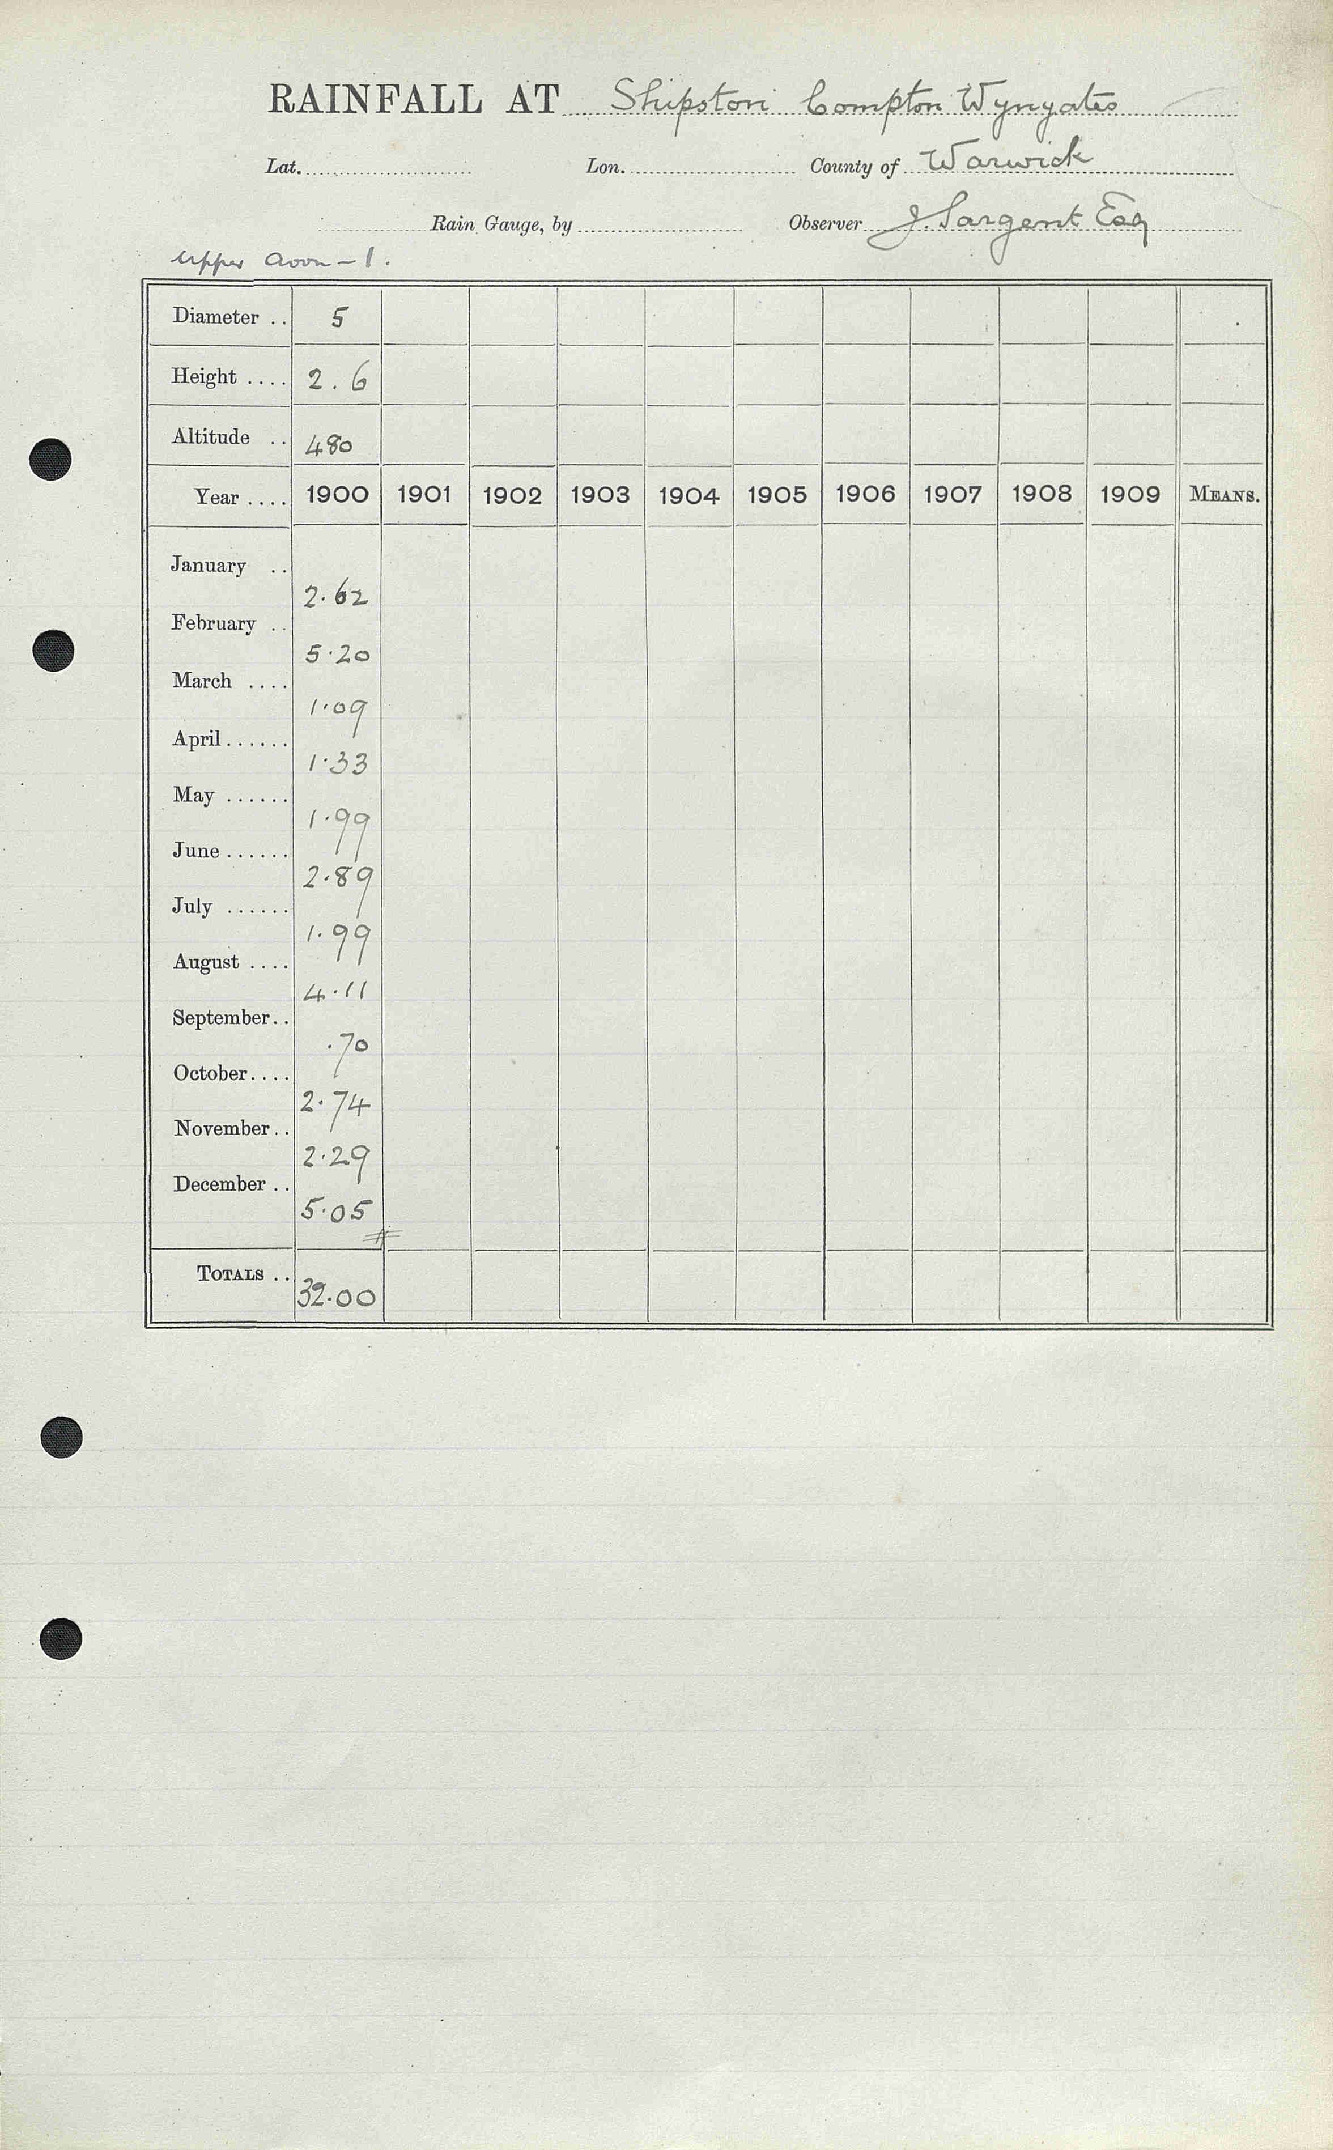 RAINFALL AT Shipston Compton Wynyates
Lat. Lon. County of Warwick
Rain Gauge, by Observer J. Sargent Esq
Upper Avon - 1.
Diameter .. 5
Height .... 2.6
Altitude .. 480
Year .... 1900 1901 1902 1903 1904 1905 1906 1907 1908 1909 MEANS.
January .. 2.62
February .. 5.20
March .... 1.09
April ...... 1.33
May ...... 1.99
June ...... 2.89
July ...... 1.99
August .... 4.11
September .. .70
October .... 2.74
November .. 2.29
December .. 5.05
TOTALS .. 32.00